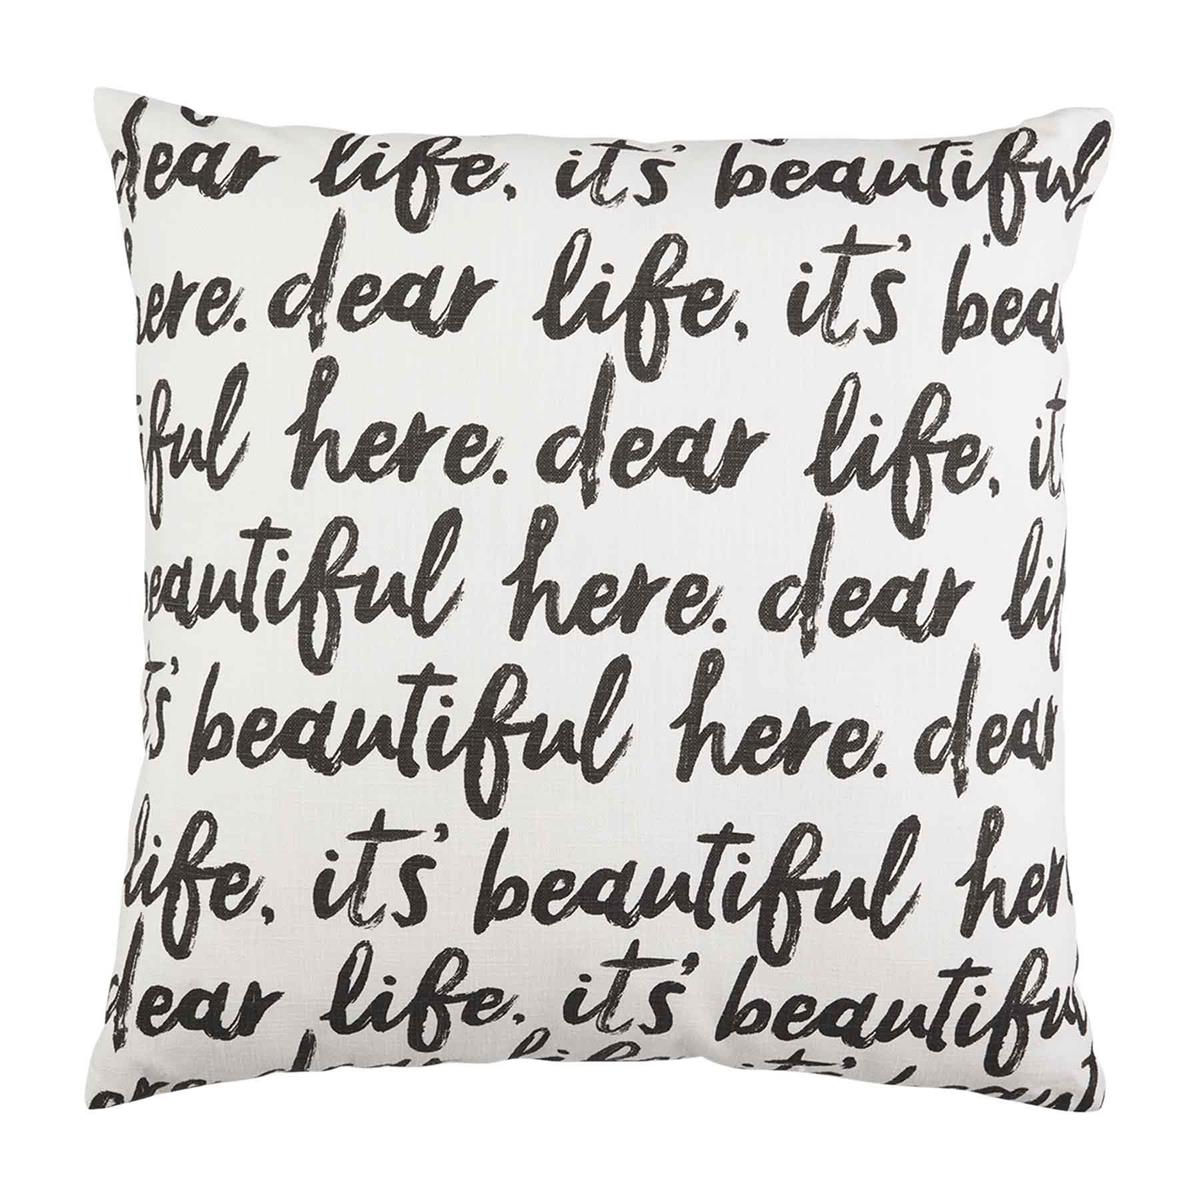 dear life, it's beautiful
here. dear life, it's bea
iful here. dear life, it's
beautiful here. dear lif
it's beautiful here. dear
life, it's beautiful her
dear life, it's beautiful
ere. dear life, it's beaut